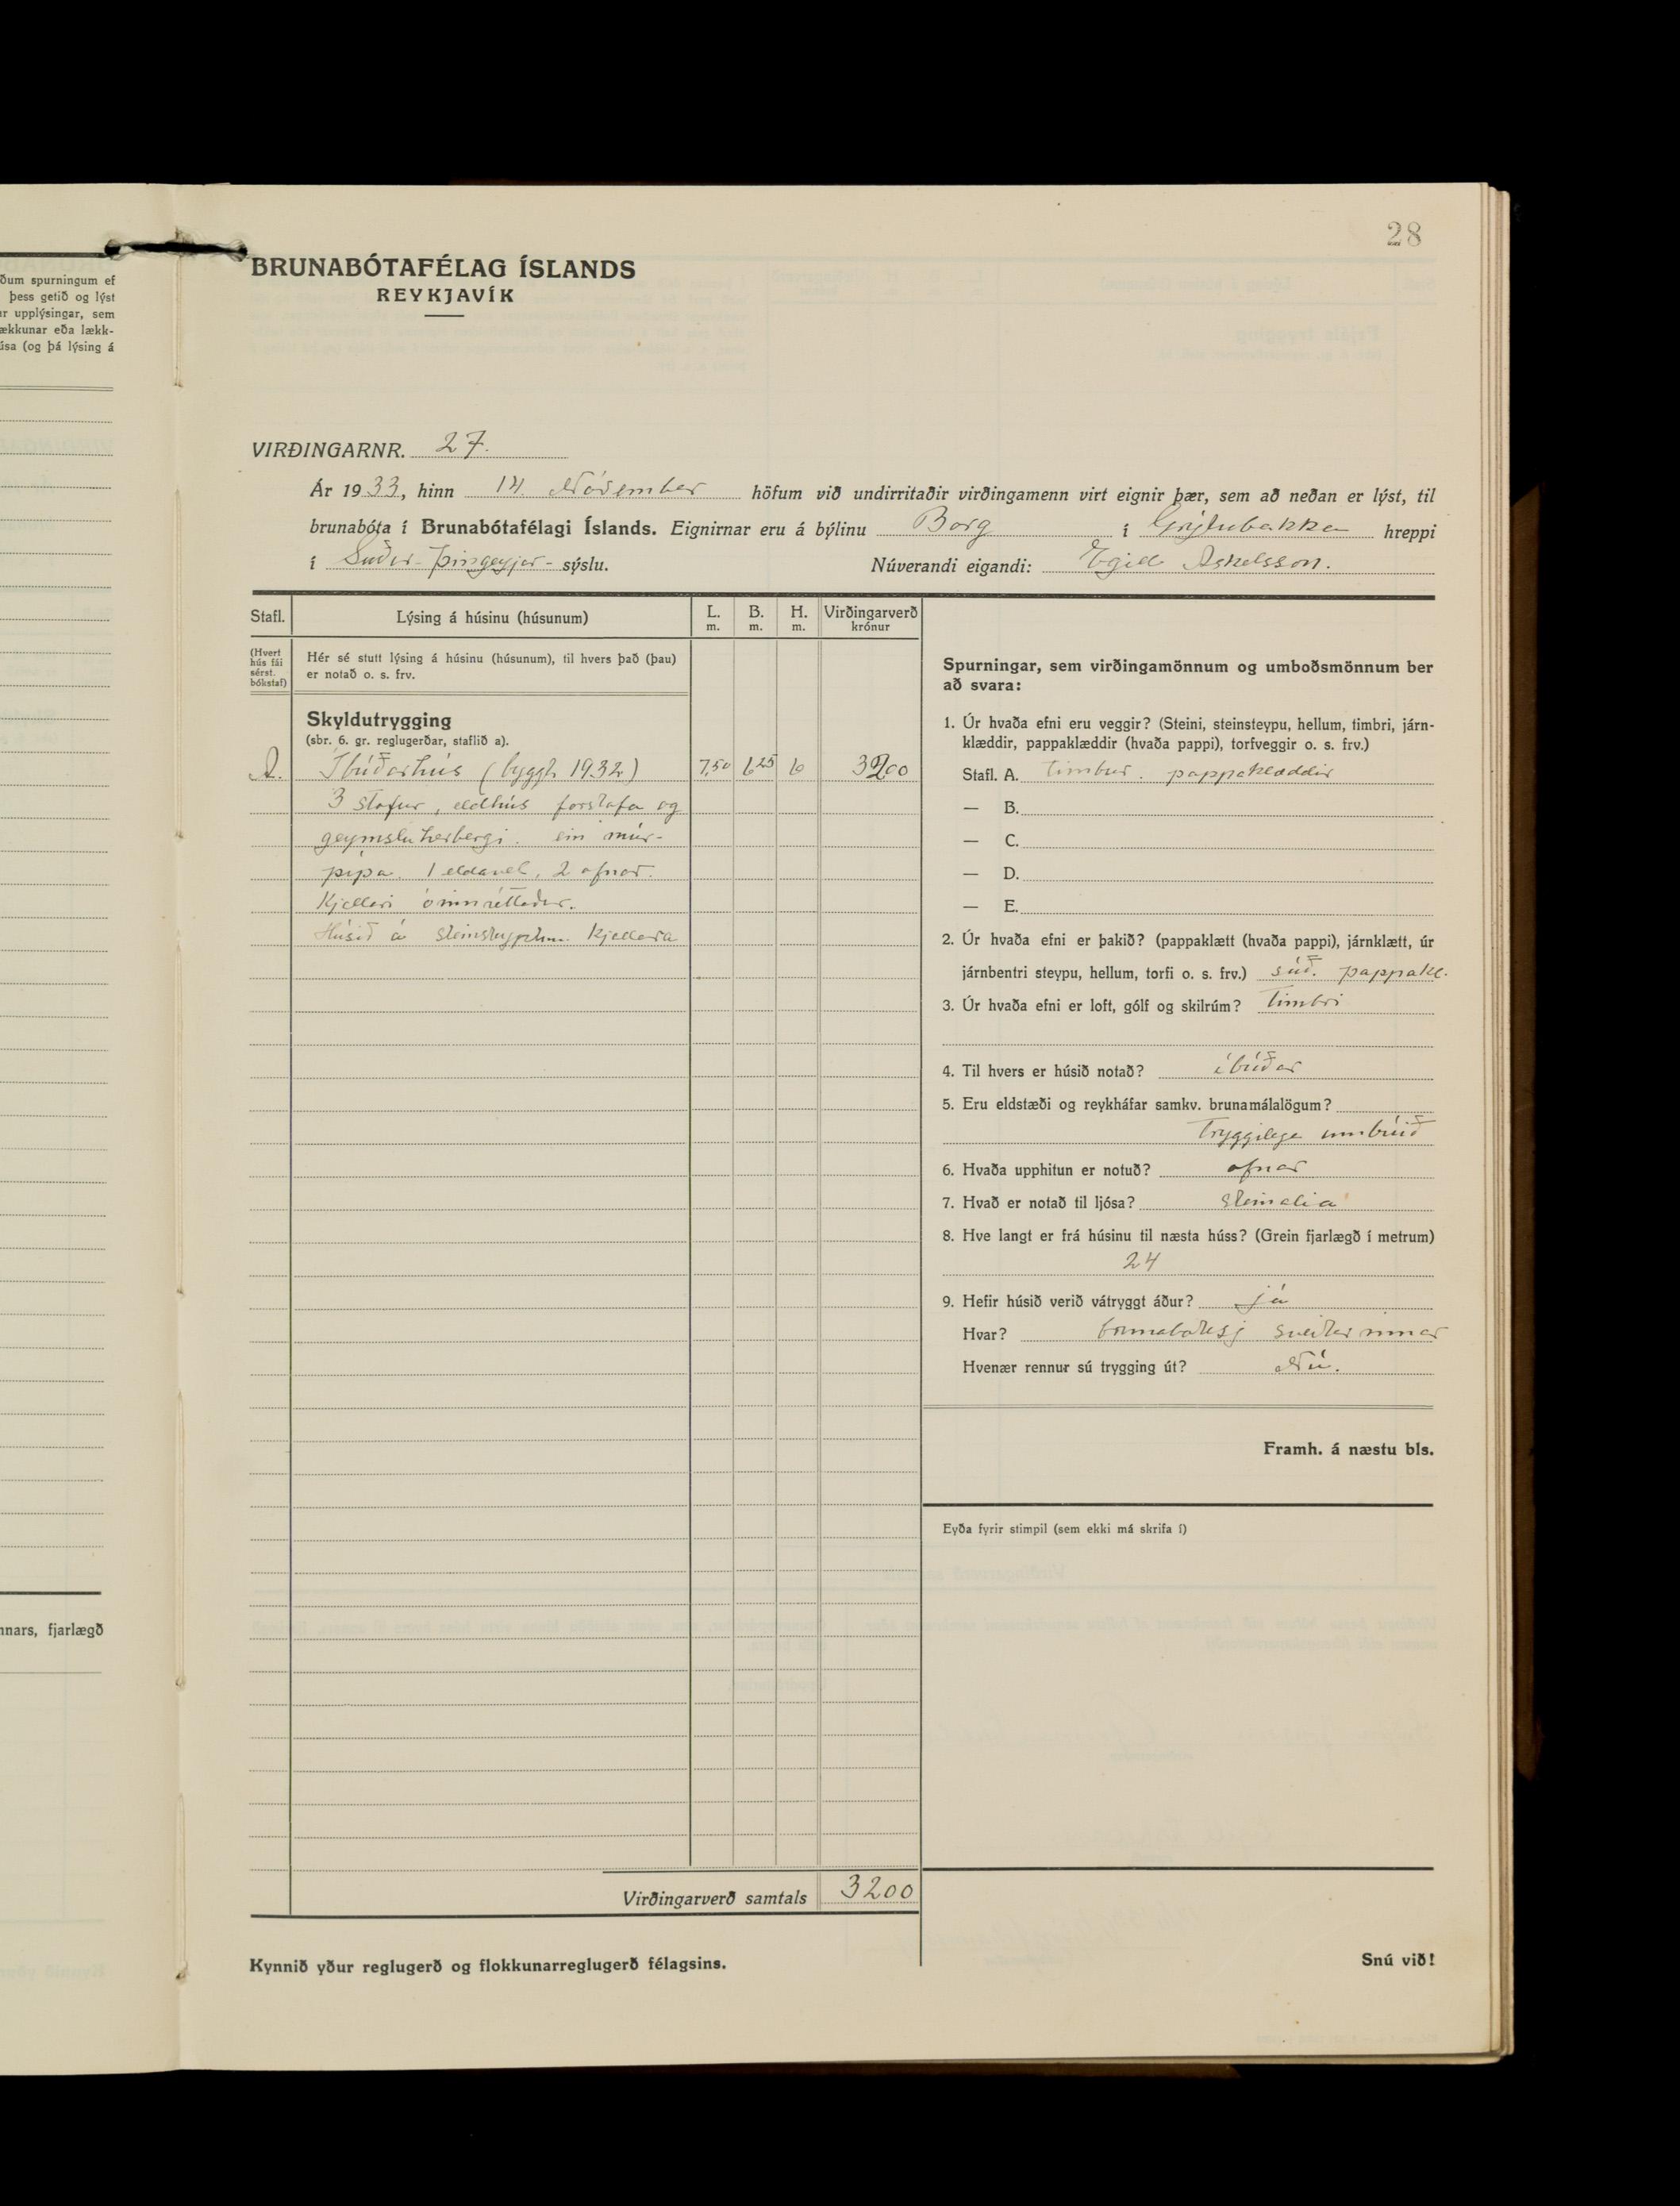 ðum spurningum ef
þess getið og lýst
ar upplýsingar, sem
ækkunar eða lækk-
úsa (og þá lýsing á
nnars, fjarlægð
28
BRUNABÓTAFÉLAG ÍSLANDS
REYKJAVÍK
VIRÐINGARNR. 27.
Ár 1933, hinn 14. Nóvember höfum við undirritaðir virðingamenn virt eignir þær, sem að neðan er lýst, til
brunabóta í Brunabótafélagi Íslands. Eignirnar eru á býlinu Borg í Grýtubakka hreppi
í Suður-Þingeyjar- sýslu. Núverandi eigandi: Egill Áskelsson.
Stafl. Lýsing á húsinu (húsunum) L. m. B. m. H. m. Virðingarverð krónur
(Hvert hús fái sérst. bókstaf)
Hér sé stutt lýsing á húsinu (húsunum), til hvers það (þau)
er notað o. s. frv.
Skyldutrygging
(sbr. 6. gr. reglugerðar, staflið a).
A. Íbúðarhús (byggt 1932) 7,50 6 25 6 3200
3 stofur, eldhús forstofa og
geymsluherbergi. ein múr-
pípa. 1 eldavél, 2 ofnar.
Kjallari óinnréttaður.
Húsið á steinsteyptum kjallara
Virðingarverð samtals 3200
Kynnið yður reglugerð og flokkunarreglugerð félagsins.
Spurningar, sem virðingamönnum og umboðsmönnum ber
að svara:
1. Úr hvaða efni eru veggir? (Steini, steinsteypu, hellum, timbri, járn-
klæddir, pappaklæddir (hvaða pappi), torfveggir o. s. frv.)
Stafl. A. timbur. pappaklæddir
— B.
— C.
— D.
— E.
2. Úr hvaða efni er þakið? (pappaklætt (hvaða pappi), járnklætt, úr
járnbentri steypu, hellum, torfi o. s. frv.) súð. pappakl.
3. Úr hvaða efni er loft, gólf og skilrúm? Timbri
4. Til hvers er húsið notað? íbúðar
5. Eru eldstæði og reykháfar samkv. brunamálalögum?
Tryggilega umbúið
6. Hvaða upphitun er notuð? ofnar
7. Hvað er notað til ljósa? steinolia
8. Hve langt er frá húsinu til næsta húss? (Grein fjarlægð í metrum)
24
9. Hefir húsið verið vátryggt áður? já
Hvar? brunabótasj sveitarinnar
Hvenær rennur sú trygging út? Nú.
Framh. á næstu bls.
Eyða fyrir stimpil (sem ekki má skrifa í)
Snú við!